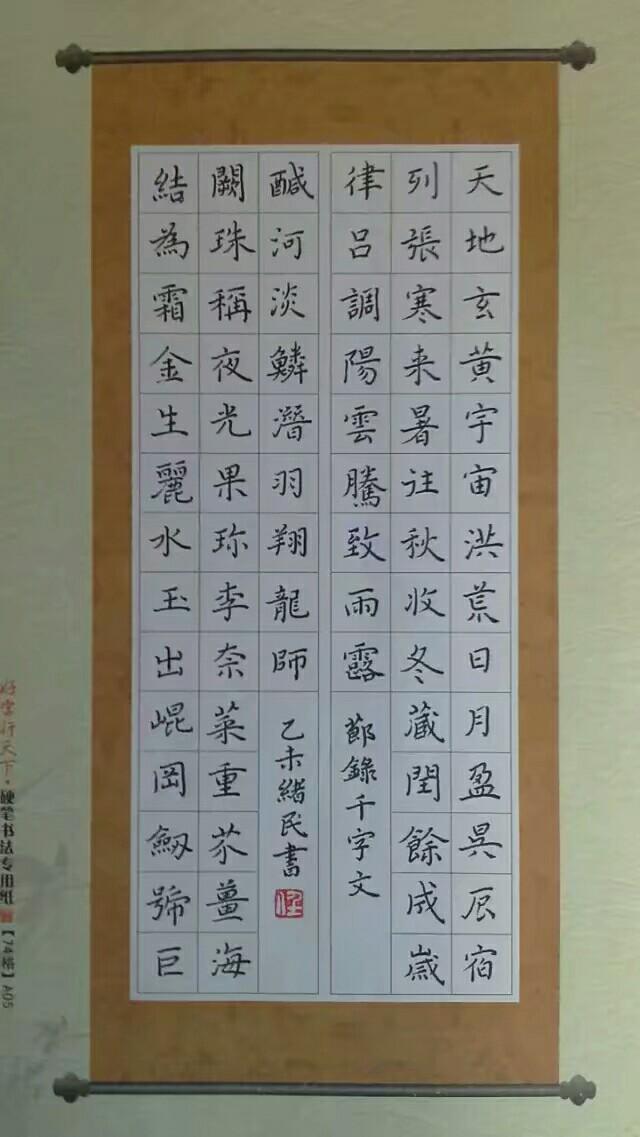 天地玄黄宇宙洪荒日月盈昃辰宿
列張寒来暑往秋收冬藏閏餘成歲
律呂調陽雲騰致雨露
節錄千字文
結為霜金生麗水玉出崐岡劒號巨
闕珠稱夜光果珎李奈菜重芥薑海
鹹河淡鱗潛羽翔龍師
乙未緒民書
行天下·硬笔书法专用纸【74格】A05